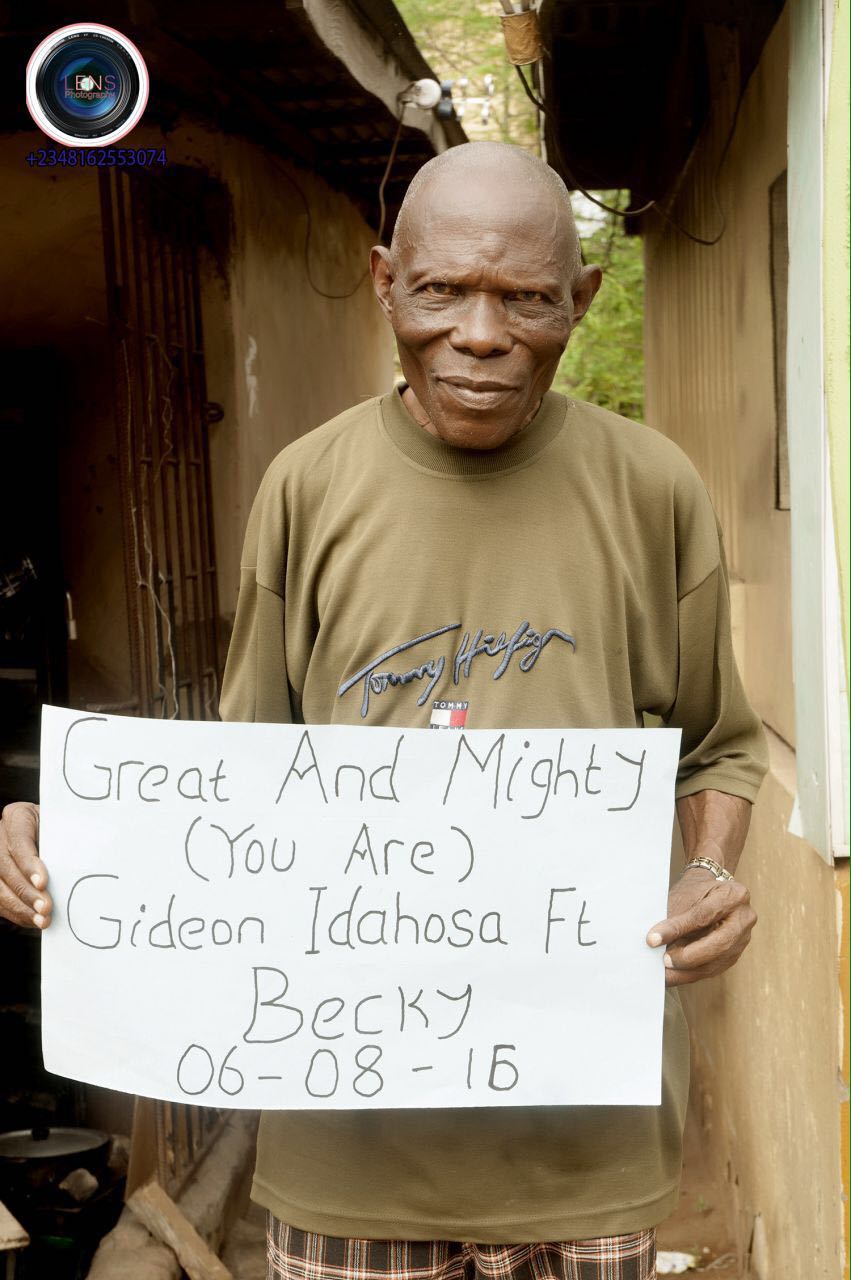 LENS
Photography
+2348162553074
Tommy Hilfiger
TOMMY
JEANS
Great And Mighty
(You Are)
Gideon Idahosa Ft
Becky
06-08-16